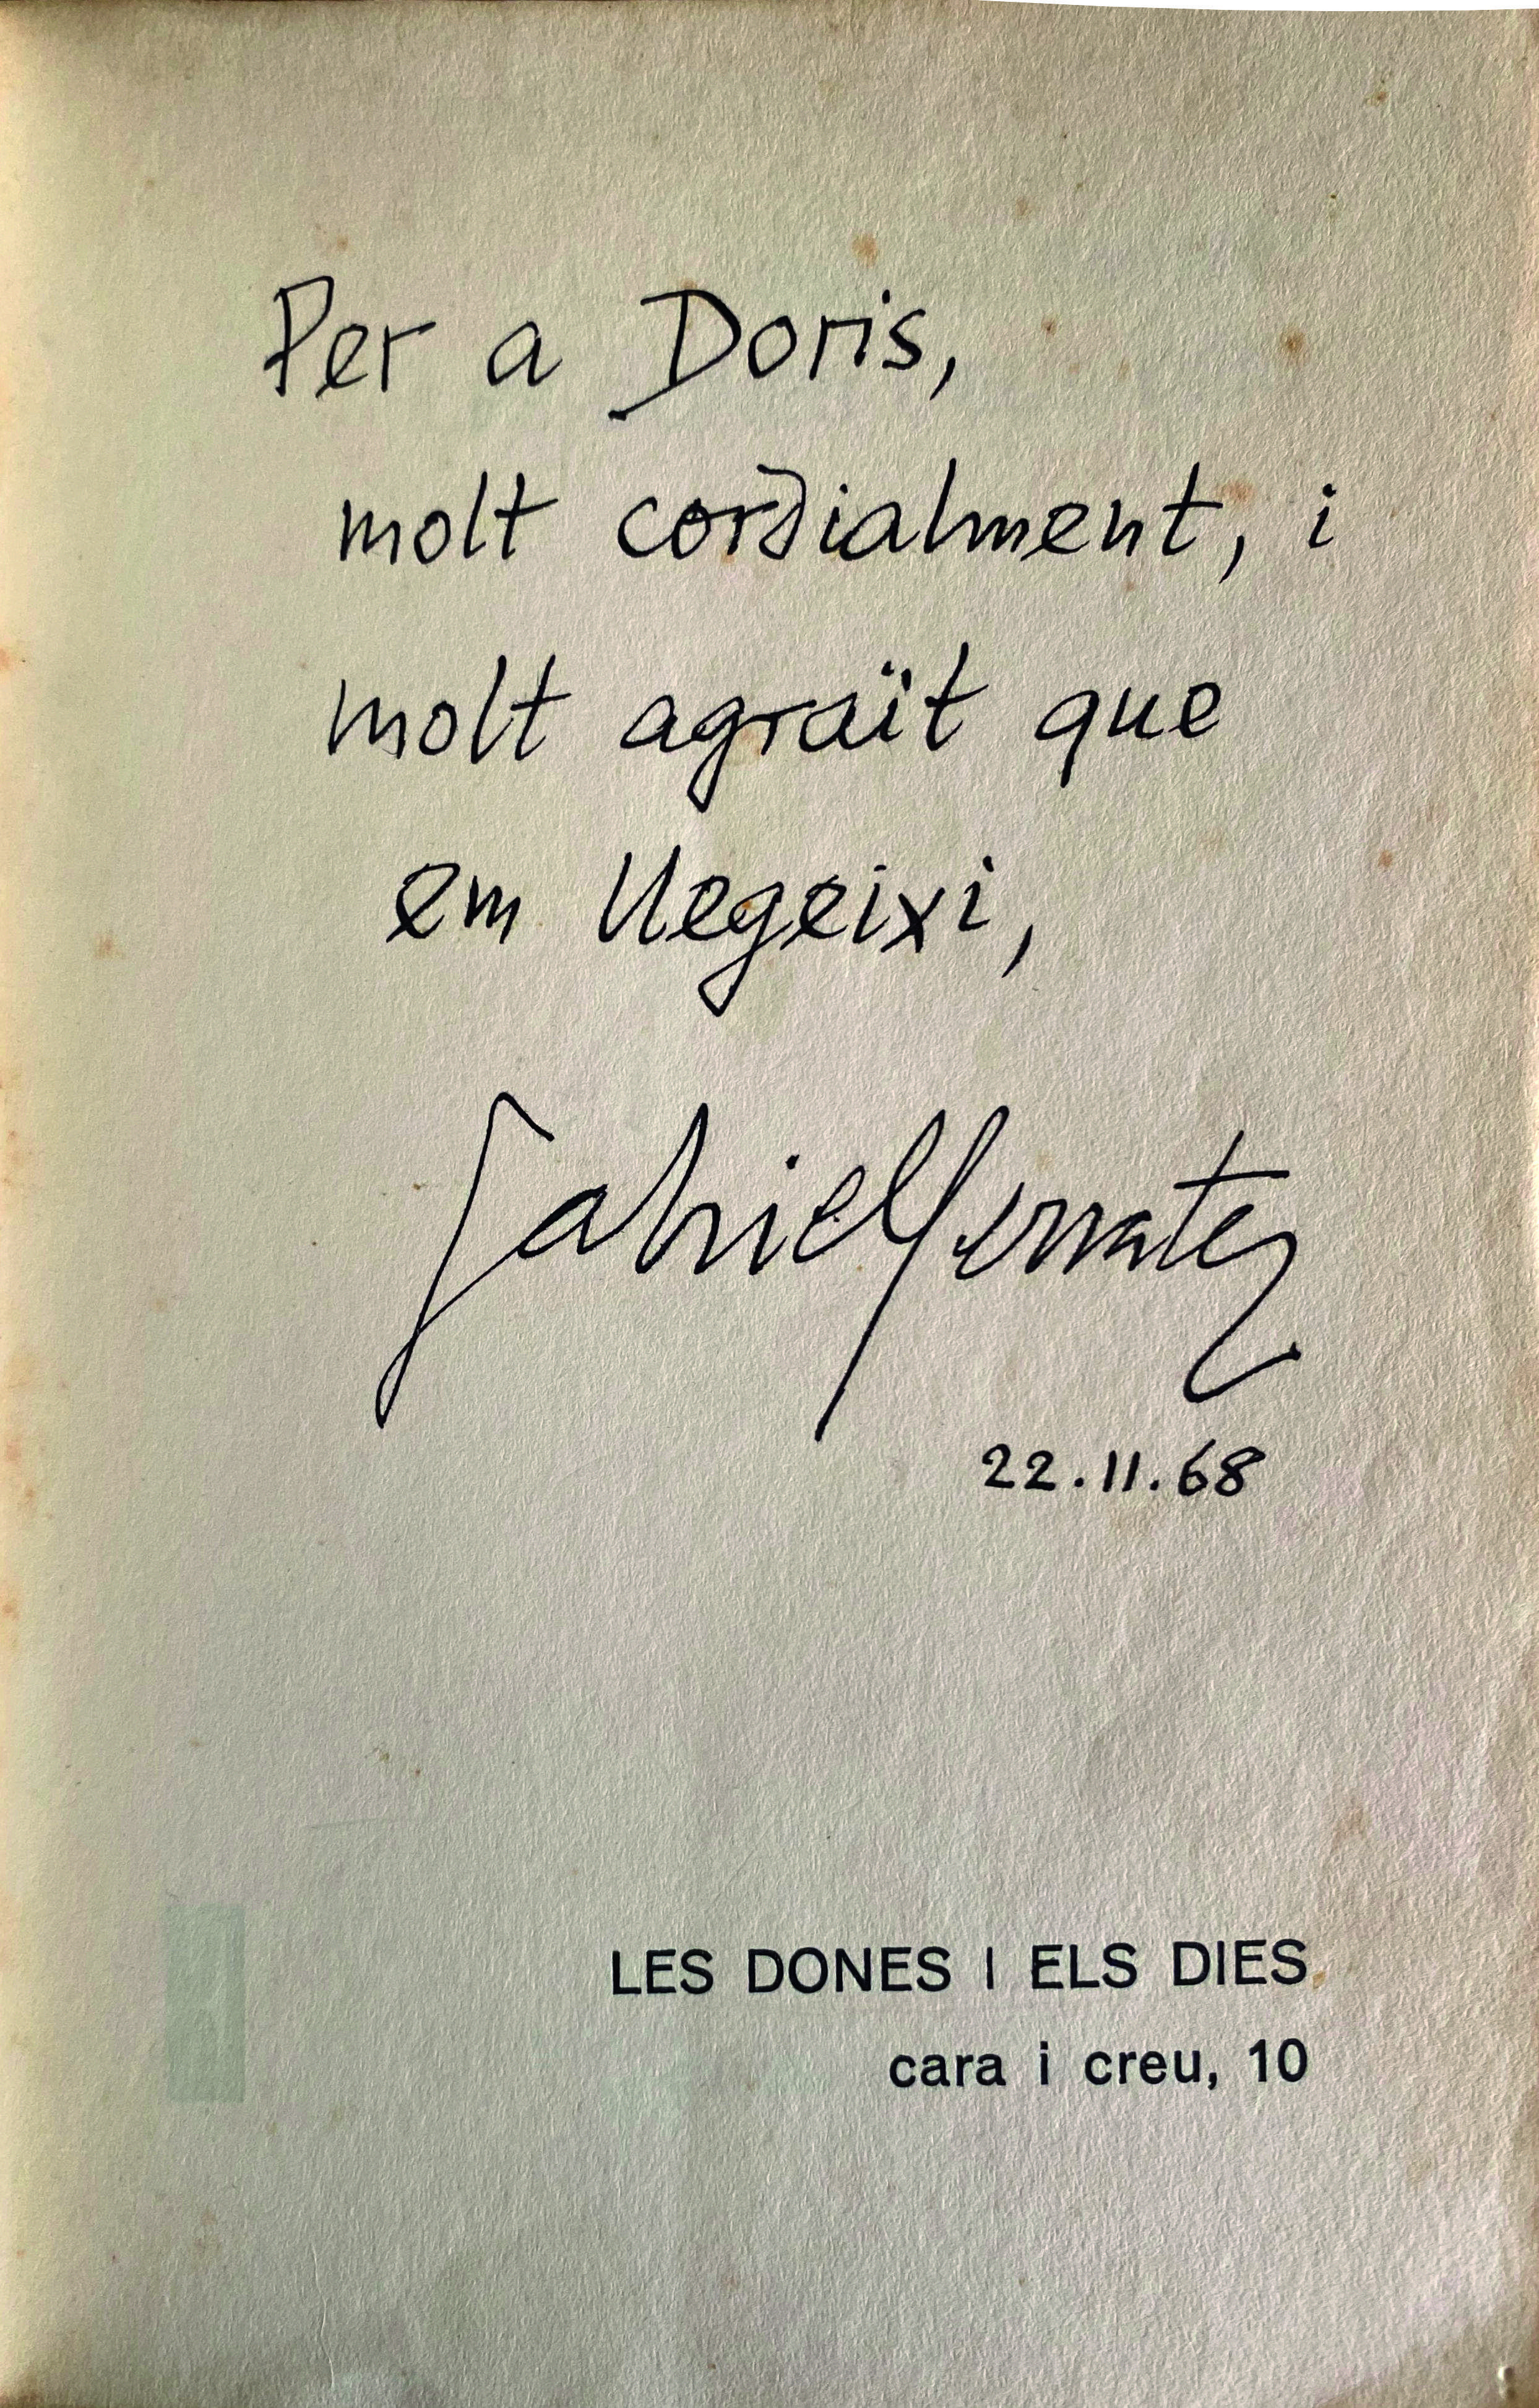 Per a Doris,
molt cordialment, i
molt agraït que
em llegeixi,
Gabriel Ferrater
22.11.68
LES DONES I ELS DIES
cara i creu, 10